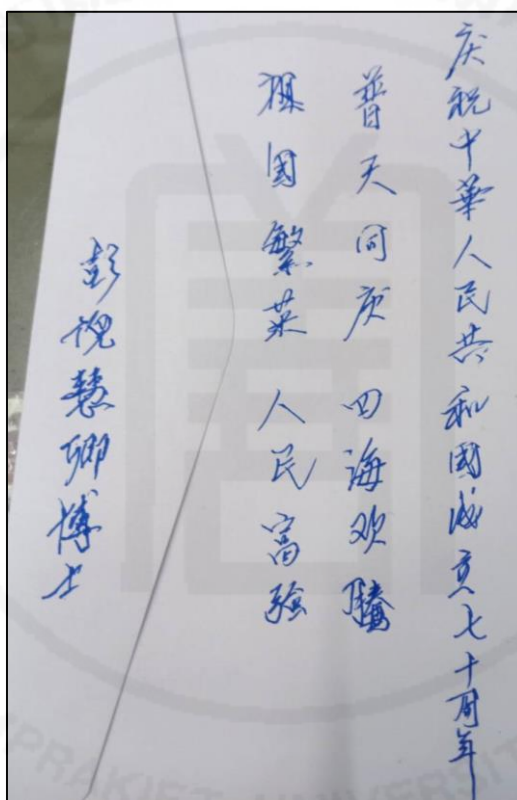 庆祝中華人民共和國成立七十周年
普天同庆 四海欢騰
祖国繁荣 人民富強
彭倪慧卿博士